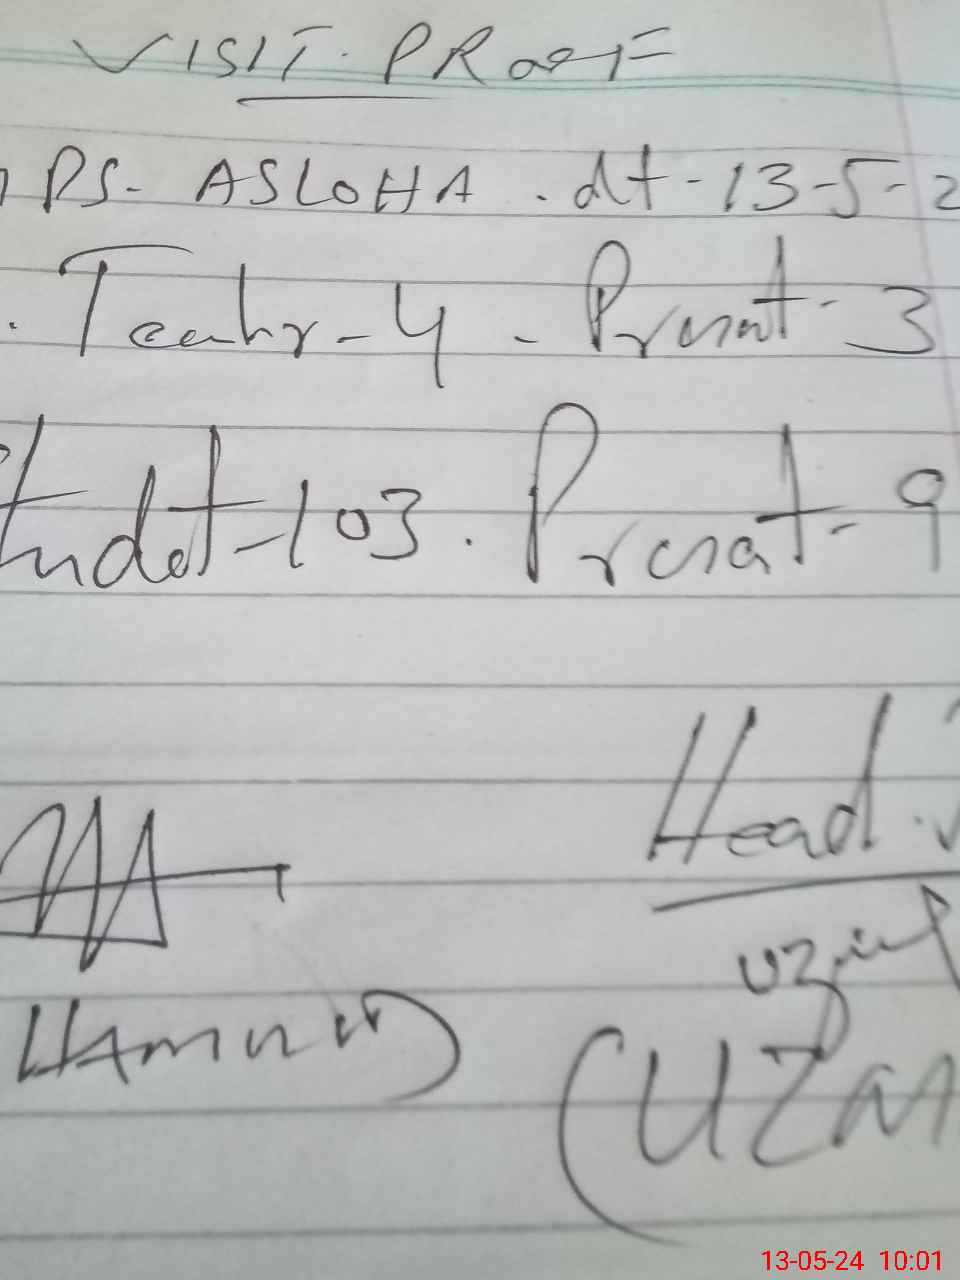 VISIT. PROOF
PS- ASLOHA . dt-13-5-2
. Teachr-4 - Presnt-3
Studet-103. Presnat-9
Head.
(UZ
13-05-24 10:01